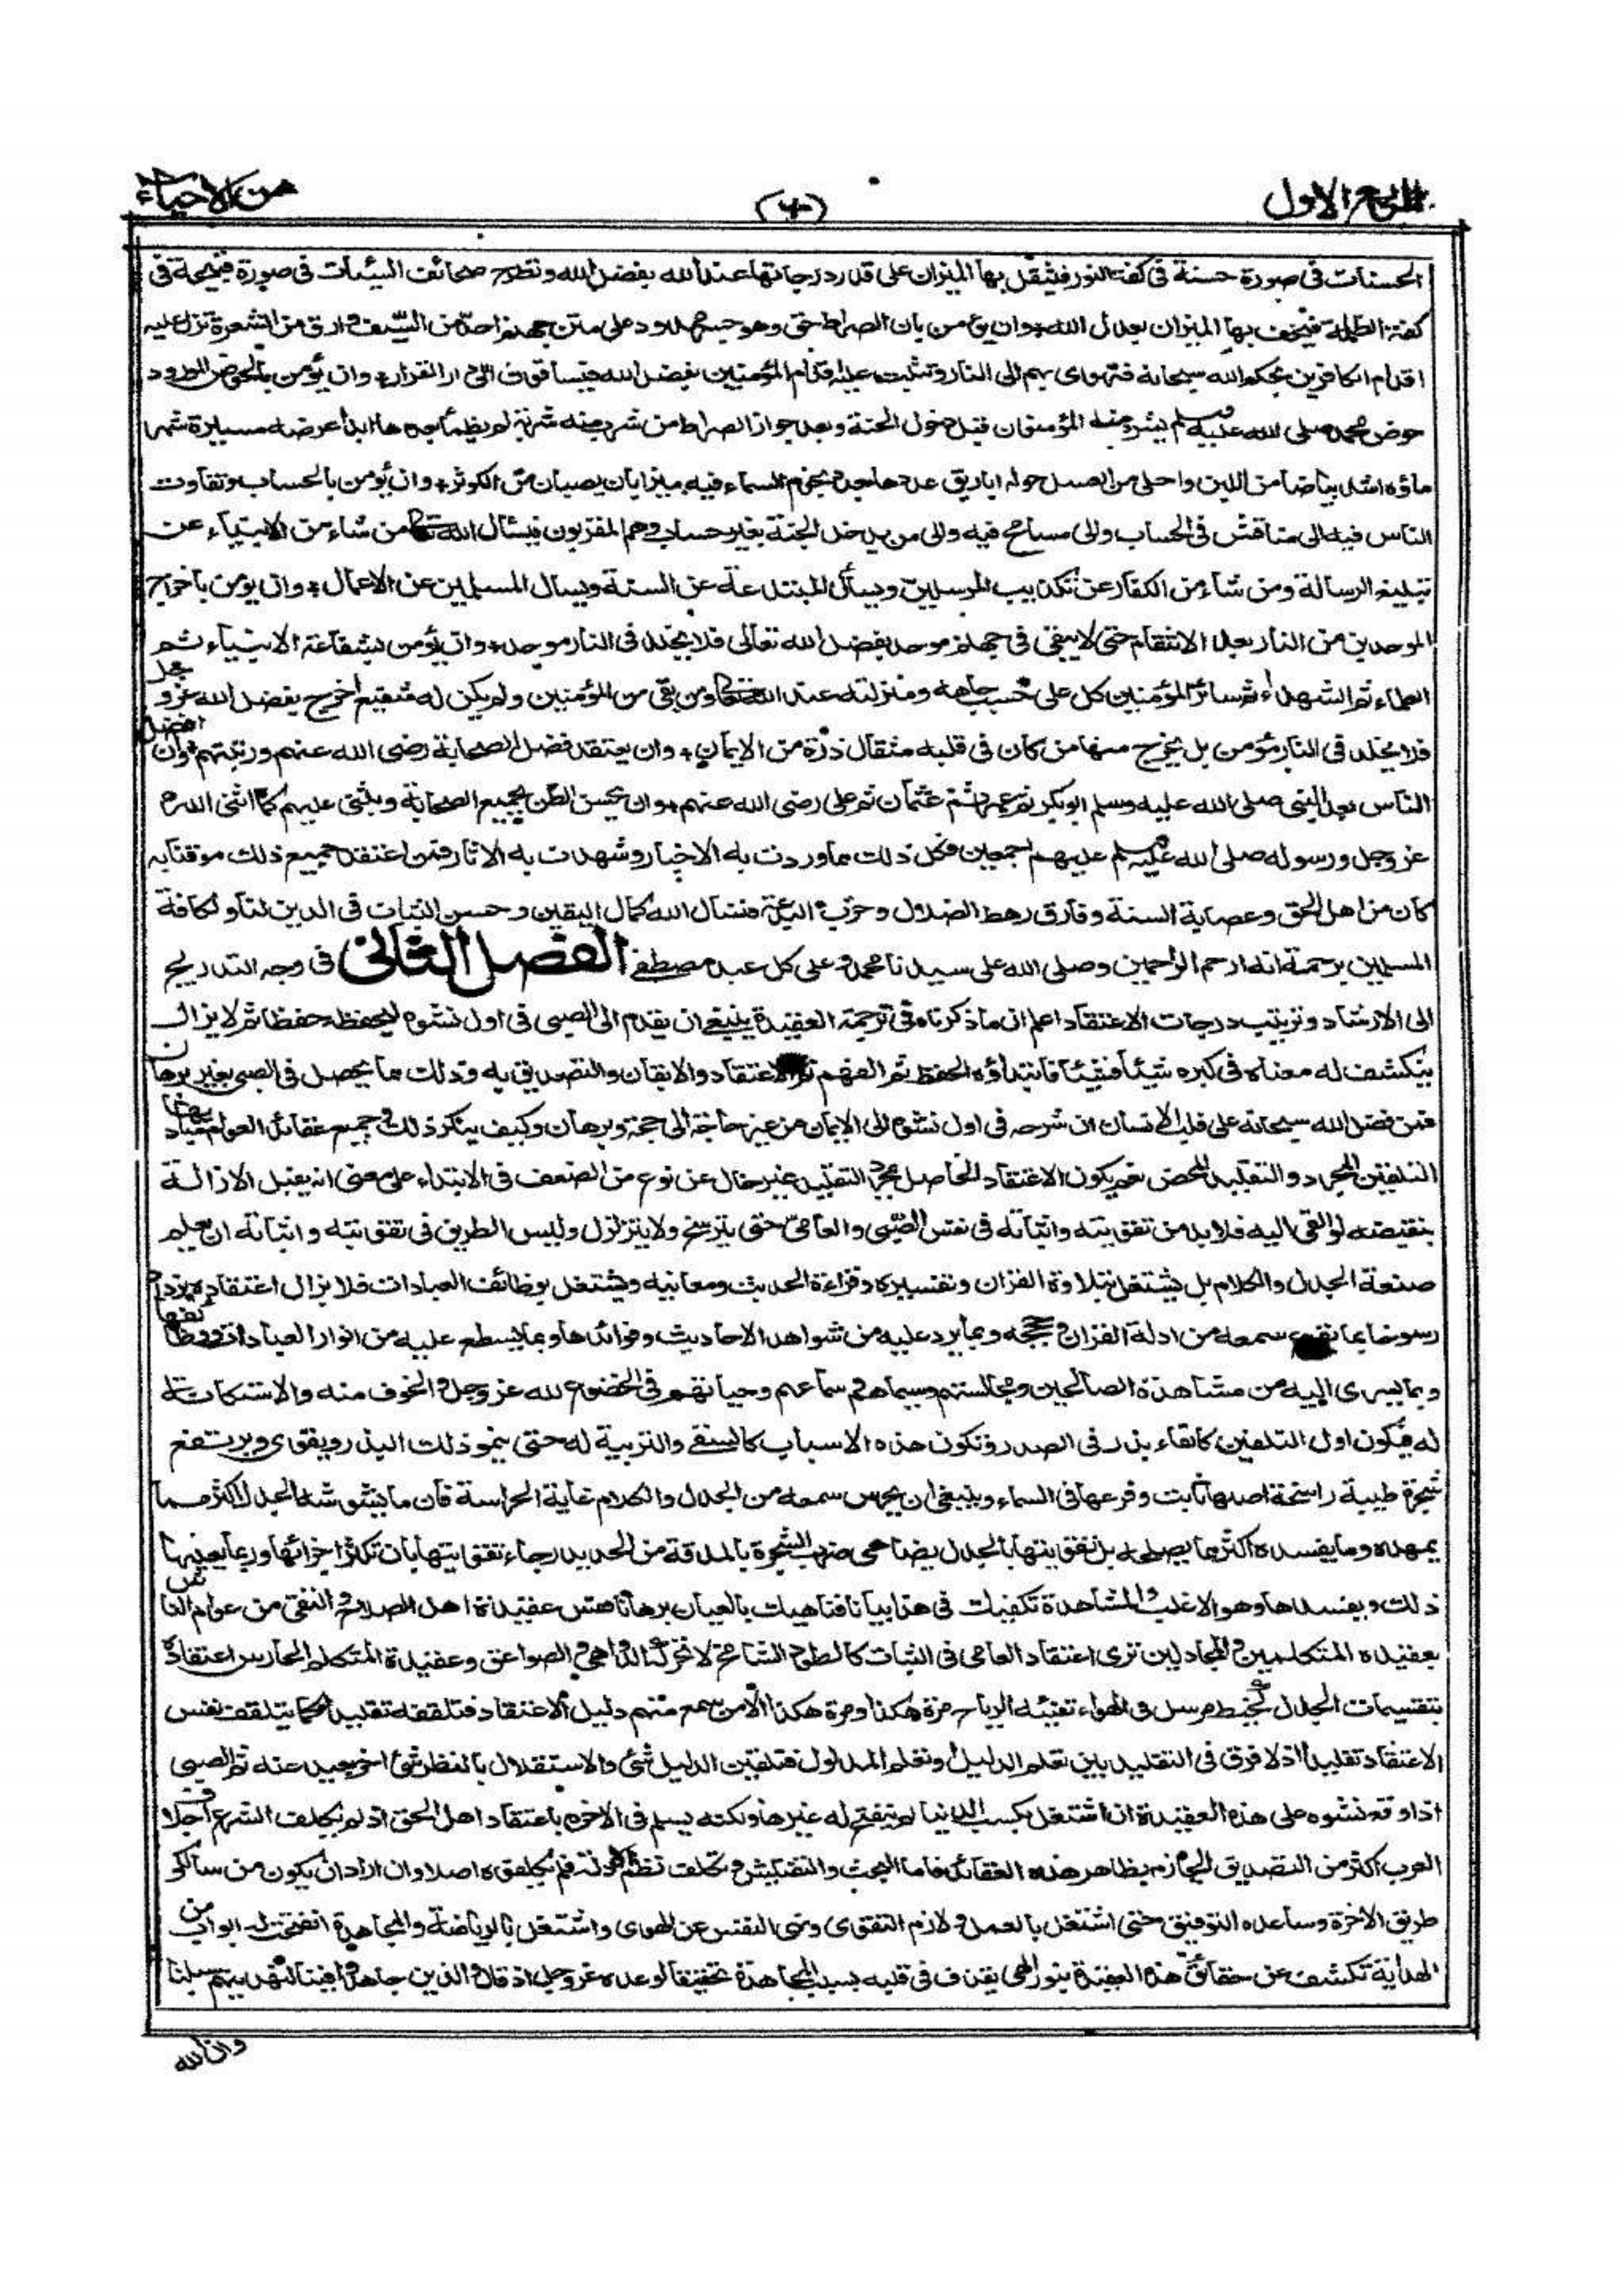 الربع الاول
من الاحياء
الحسنات فى صورة حسنة فى كفة النور فيثقل بها الميزان على قدر درجاتها عند الله بفضل الله وتطرح صحائف السيئات فى صورة قبيحة فى
كفة الظلمة فيخف بها الميزان بعدل الله وان يؤمن بان الصراط حق وهو جسر ممدود على متن جهنم احد من السيف وادق من الشعرة تزل عليه
اقدام الكافرين بحكم الله سبحانه فتهوى بهم الى النار وتثبت عليه اقدام المؤمنين بفضل الله فيساقون الى دار القرار وان يؤمن بالحوض المورود
حوض محمد صلى الله عليه وسلم يشرب منه المؤمنون قبل دخول الجنة وبعد جواز الصراط من شرب منه شربة لم يظمأ بعدها ابدا عرضه مسيرة شهر
ماؤه اشد بياضا من اللبن واحلى من العسل حوله اباريق عددها عدد نجوم السماء فيه ميزابان يصبان من الكوثر وان يؤمن بالحساب وتفاوت
الناس فيه الى مناقش فى الحساب والى مسامح فيه والى من يدخل الجنة بغير حساب وهم المقربون فيسأل الله من شاء من الانبياء عن
تبليغ الرسالة ومن شاء من الكفار عن تكذيب المرسلين ويسأل المبتدعة عن السنة ويسأل المسلمين عن الاعمال وان يؤمن باخراج
الموحدين من النار بعد الانتقام حتى لا يبقى فى جهنم موحد بفضل الله تعالى فلا يخلد فى النار موحد وان يؤمن بشفاعة الانبياء ثم
العلماء ثم الشهداء ثم سائر المؤمنين كل على حسب جاهه ومنزلته عند الله ومن بقى من المؤمنين ولم يكن له شفيع اخرج بفضل الله عز وجل
فلا يخلد فى النار مؤمن بل يخرج منها من كان فى قلبه مثقال ذرة من الايمان وان يعتقد فضل الصحابة رضى الله عنهم ورتبتهم وان افضل
الناس بعد النبى صلى الله عليه وسلم ابوبكر ثم عمر ثم عثمان ثم على رضى الله عنهم وان يحسن الظن بجميع الصحابة ويثنى عليهم كما اثنى الله
عز وجل ورسوله صلى الله عليه وسلم عليهم اجمعين فكل ذلك مما وردت به الاخبار وشهدت به الاثار فمن اعتقد جميع ذلك موقنا به
كان من اهل الحق وعصابة السنة وفارق رهط الضلال وحزب البدعة فنسأل الله كمال اليقين وحسن الثبات فى الدين لنا ولكافة
المسلمين برحمته انه ارحم الراحمين وصلى الله على سيدنا محمد وعلى كل عبد مصطفى الفصل الثانى فى وجه التدريج
الى الارشاد وترتيب درجات الاعتقاد اعلم ان ما ذكرناه فى ترجمة العقيدة ينبغى ان يقدم الى الصبى فى اول نشوه ليحفظه حفظا ثم لا يزال
ينكشف له معناه فى كبره شيئا فشيئا فابتداؤه الحفظ ثم الفهم ثم الاعتقاد والايقان والتصديق به وذلك مما يحصل فى الصبى بغير برهان
فمن فضل الله سبحانه على قلب الانسان ان شرحه فى اول نشوه الى الايمان من غير حاجة الى حجة وبرهان وكيف ينكر ذلك وجميع عقائد العوام مباديها
التلقين المجرد والتقليد المحض نعم يكون الاعتقاد الحاصل بمجرد التقليد غير خال عن نوع من الضعف فى الابتداء على معنى انه يقبل الازالة
بنقيضه لو القى اليه فلا بد من تقويته واثباته فى نفس الصبى والعامى حتى يترسخ ولا يتزلزل وليس الطريق فى تقويته واثباته ان يعلم
صنعة الجدل والكلام بل يشتغل بتلاوة القران وتفسيره وقراءة الحديث ومعانيه ويشتغل بوظائف العبادات فلا يزال اعتقاده يزداد
رسوخا بما يقرع سمعه من ادلة القران وحججه وبما يرد عليه من شواهد الاحاديث وفوائدها وبما يسطع عليه من انوار العبادات ووظائفها
وبما يسرى اليه من مشاهدة الصالحين ومجالستهم وسيماهم وسماعهم وهيأتهم فى الخضوع لله عز وجل والخوف منه والاستكانة
له فيكون اول التلقين كالقاء بذر فى الصدر وتكون هذه الاسباب كالسقى والتربية له حتى ينمو ذلك البذر ويقوى ويرتفع
شجرة طيبة راسخة اصلها ثابت وفرعها فى السماء وينبغى ان يحرس سمعه من الجدل والكلام غاية الحراسة فان ما يشوشه الجدل اكثر مما
يمهده وما يفسده اكثر مما يصلحه بل تقويتها بالجدل يضاهى ضرب الشجرة بالمدقة من الحديد رجاء تقويتها بان تكثر اجزائها وربما يفتتها
ذلك ويفسدها وهو الاغلب والمشاهدة تكفيك فى هذا بيانا فناهيك بالعيان برهانا فقس عقيدة اهل الصلاح والتقى من عوام الناس
بعقيدة المتكلمين والمجادلين ترى اعتقاد العامى فى الثبات كالطود الشامخ لا تحركه الدواهى والصواعق وعقيدة المتكلم الحارس اعتقاده
بتقسيمات الجدل كخيط مرسل فى الهواء تفيئه الرياح مرة هكذا ومرة هكذا الا من سمع منهم دليل الاعتقاد فتلقفه تقليدا كما يتلقف نفس
الاعتقاد تقليدا اذ لا فرق فى التقليد بين تعلم الدليل او تعلم المدلول فتلقين الدليل شئ والاستقلال بالنظر شئ اخر بعيد عنه ثم الصبى
اذا وقع نشوه على هذه العقيدة ان اشتغل بكسب الدنيا لم ينفتح له غيرها ولكنه يسلم فى الاخرة باعتقاد اهل الحق اذ لم يكلف الشرع اجلاف
العرب اكثر من التصديق الجازم بظاهر هذه العقائد فاما البحث والتفتيش وتكلف نظم الادلة فلم يكلفوه اصلا وان اراد ان يكون من سالكى
طريق الاخرة وساعده التوفيق حتى اشتغل بالعمل ولازم التقوى ونهى النفس عن الهوى واشتغل بالرياضة والمجاهدة انفتحت له ابواب من
الهداية تكشف عن حقائق هذه العقيدة بنور الهى يقذف فى قلبه بسبب المجاهدة تحقيقا لوعده عز وجل اذ قال والذين جاهدوا فينا لنهدينهم سبلنا
وان الله